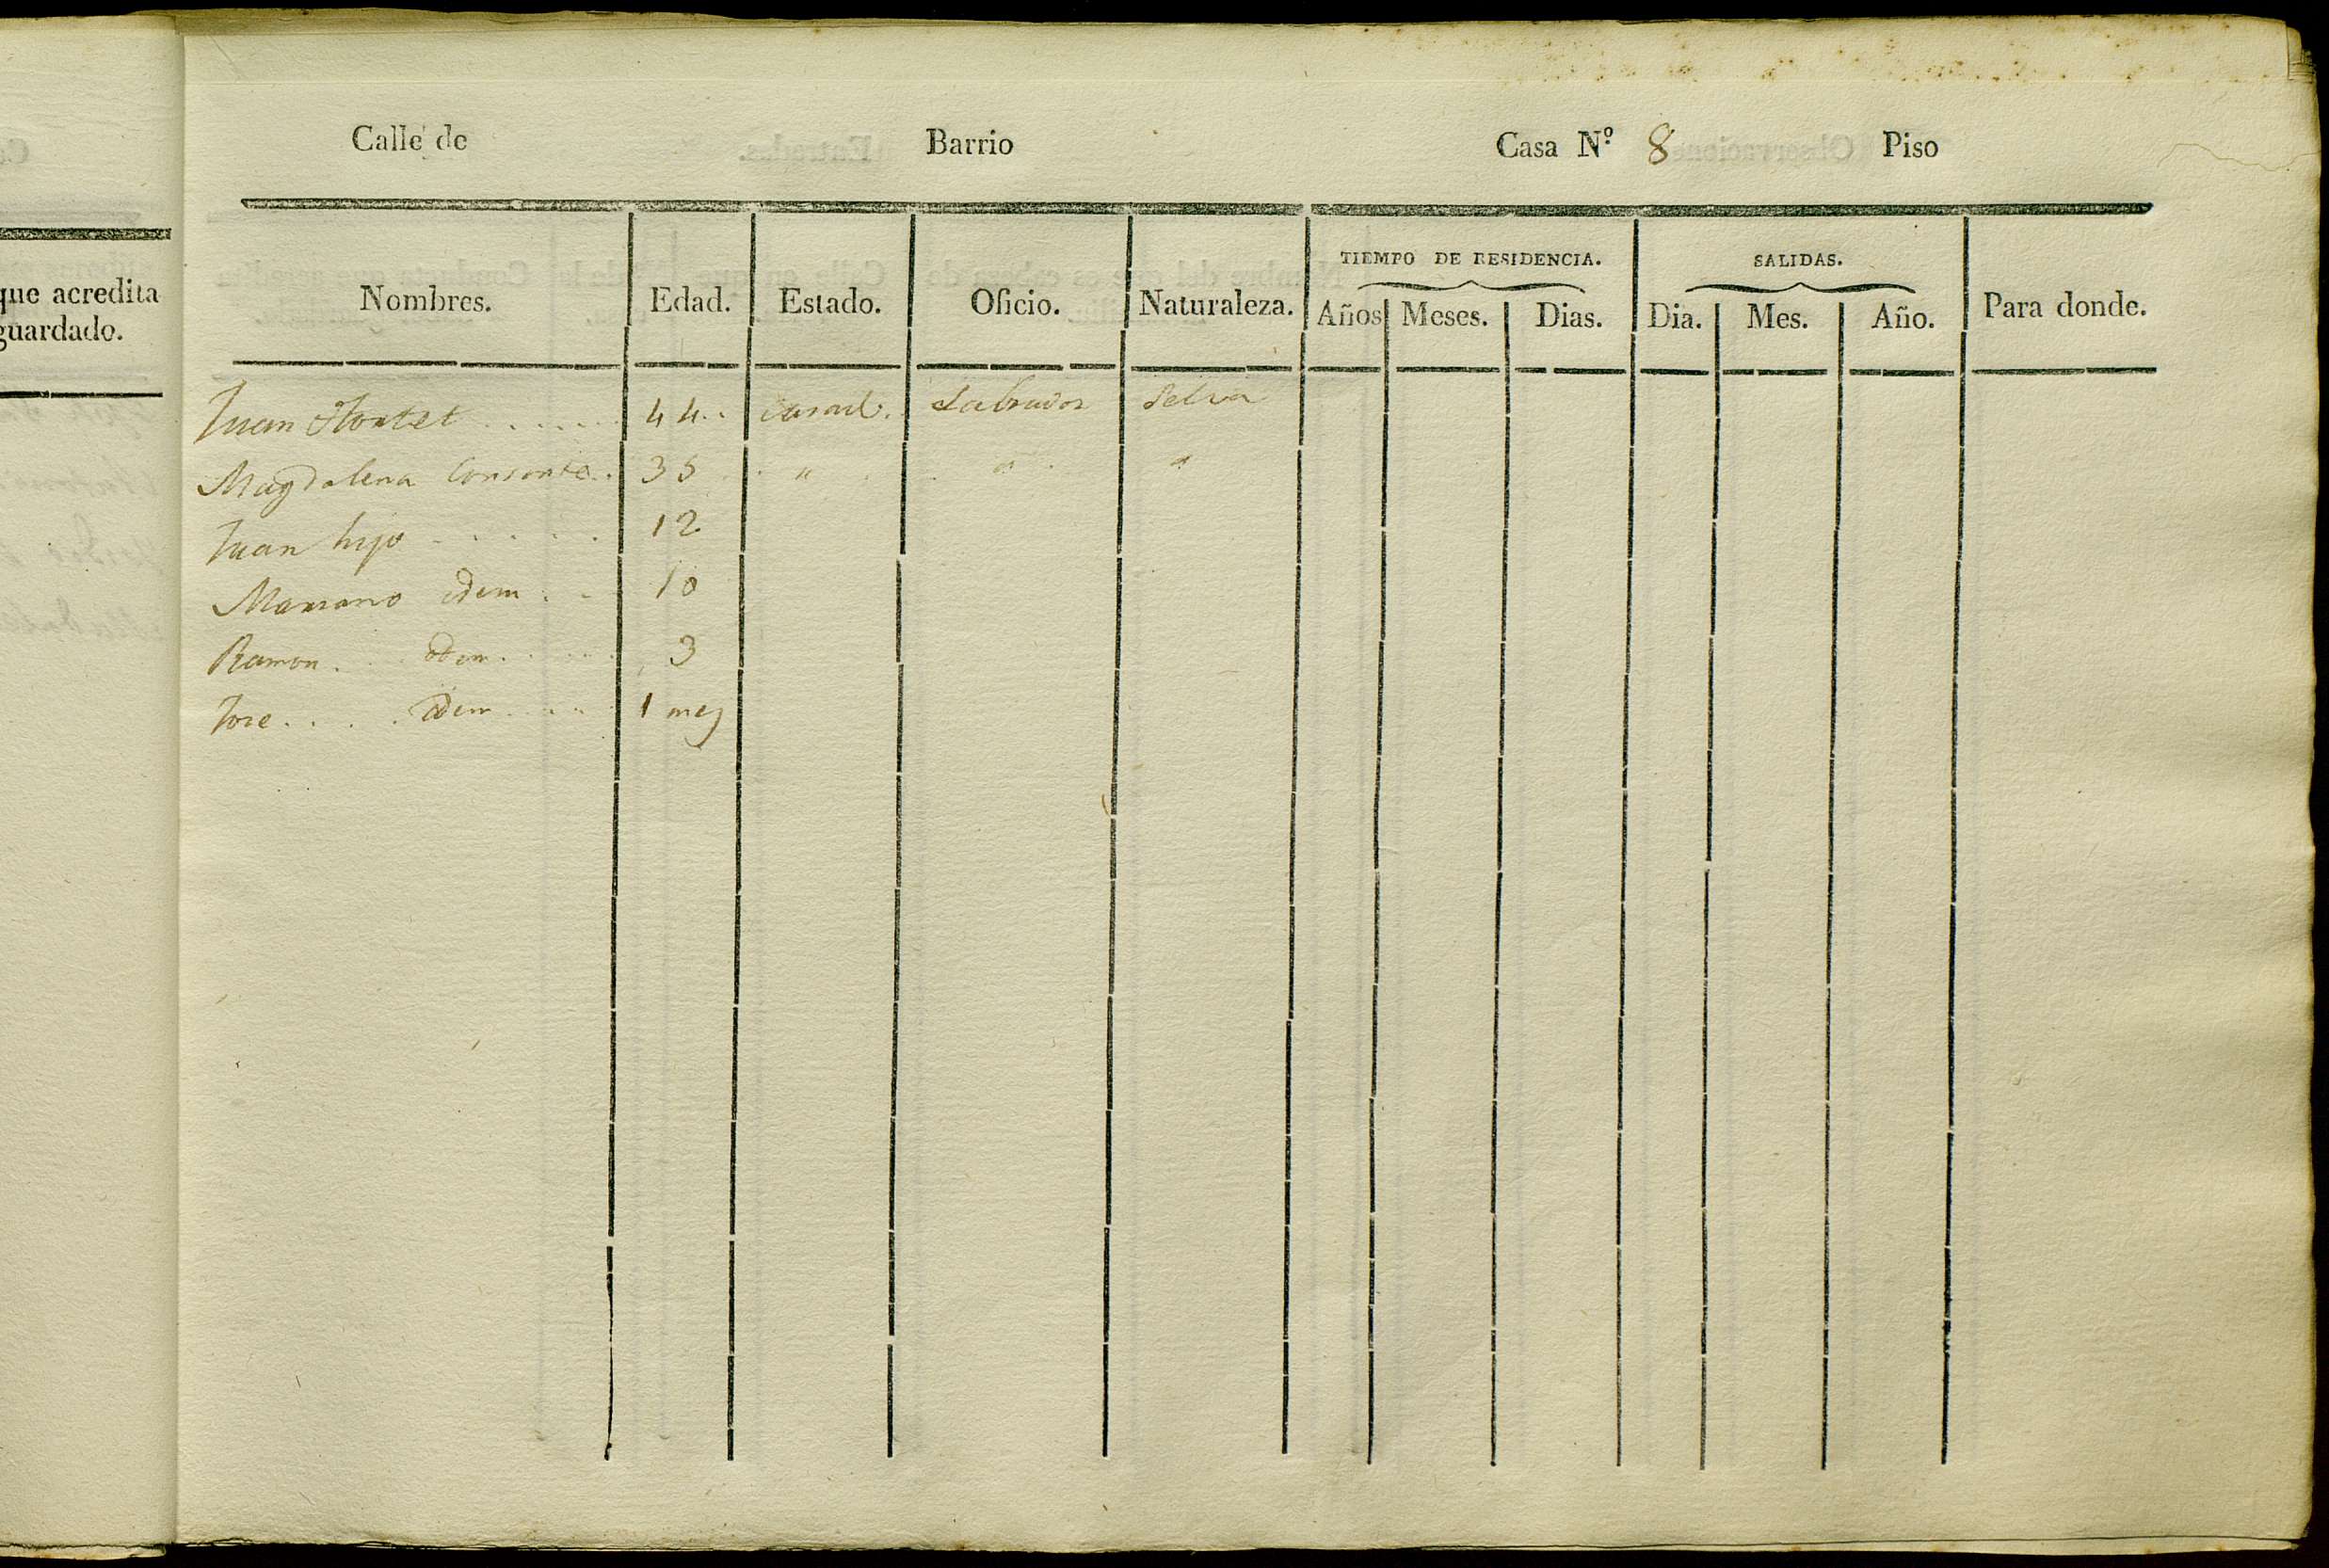 Calle de Barrio Casa N.º 8 Piso
que acredita
guardado.
TIEMPO DE RESIDENCIA. SALIDAS.
Nombres. Edad. Estado. Oficio. Naturaleza. Años Meses. Dias. Dia. Mes. Año. Para donde.
Juan 44.. Labrador Selva
Magdalena 35 " " "
Juan hijo 12
Mariano idem 10
Ramon idem 3
Jose idem 1 mes